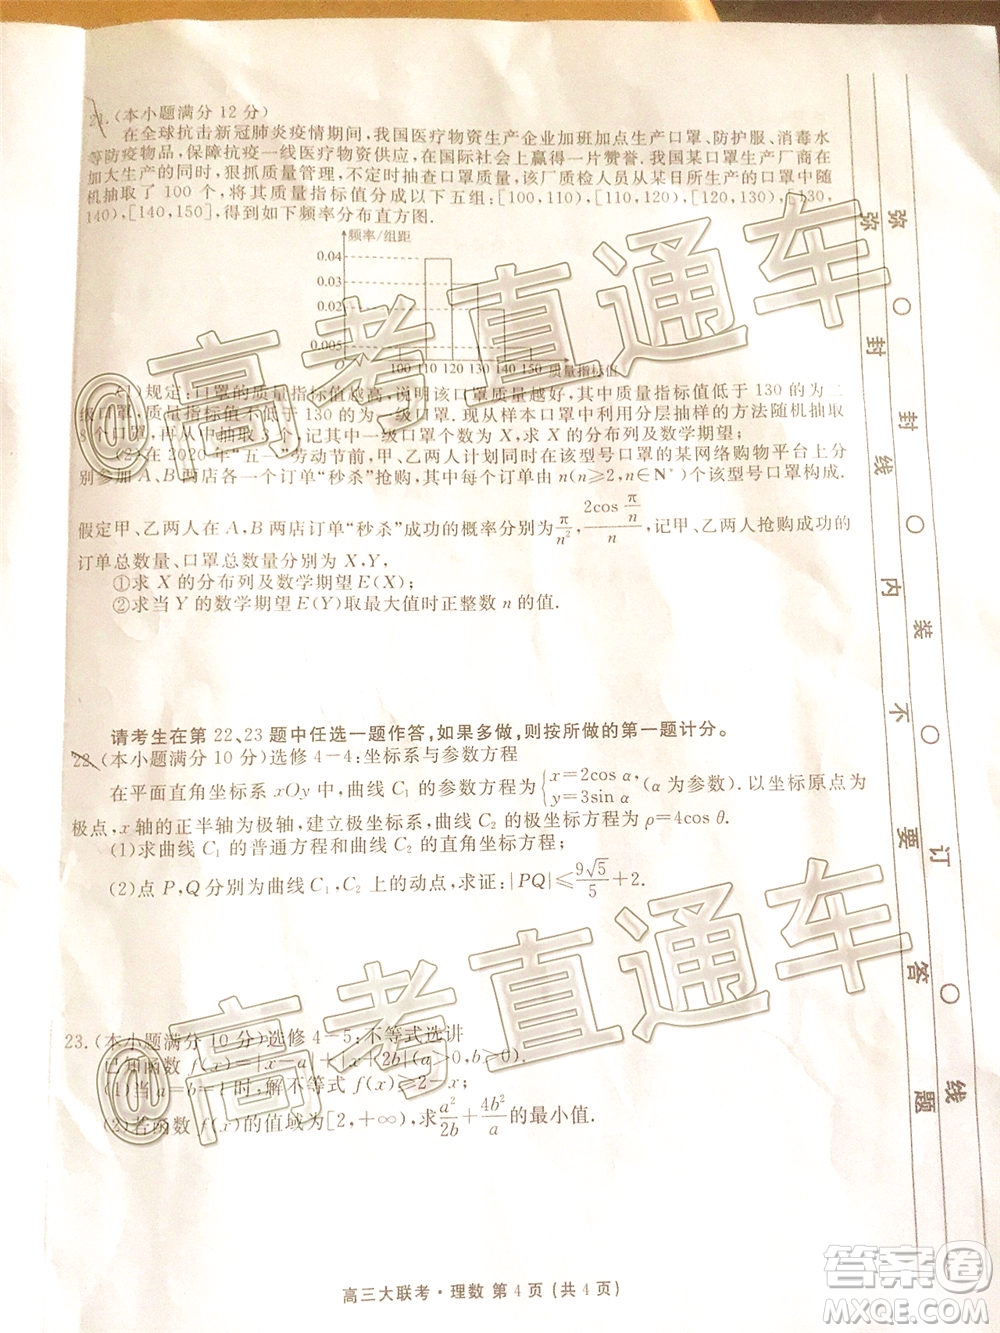 21.(本小题满分 12 分)
在全球抗击新冠肺炎疫情期间,我国医疗物资生产企业加班加点生产口罩、防护服、消毒水
等防疫物品,保障抗疫一线医疗物资供应,在国际社会上赢得一片赞誉.我国某口罩生产厂商在
加大生产的同时,狠抓质量管理,不定时抽查口罩质量,该厂质检人员从某日所生产的口罩中随
机抽取了 100 个,将其质量指标值分成以下五组:[100,110),[110,120),[120,130),[130,
140),[140,150],得到如下频率分布直方图.
频率/组距
0.04
0.03
0.02
0.005
100 110 120 130 140 150 质量指标值
(1)规定:口罩的质量指标值越高,说明该口罩质量越好,其中质量指标值低于 130 的为二
级口罩,质量指标值不低于 130 的为一级口罩.现从样本口罩中利用分层抽样的方法随机抽取
个口罩,再从中抽取 3 个,记其中一级口罩个数为 ,求 的分布列及数学期望;
(2)在 2020 年“五一”劳动节前,甲、乙两人计划同时在该型号口罩的某网络购物平台上分
别参加 A、B 两店各一个订单“秒杀”抢购,其中每个订单由 n(n≥2,n∈N*)个该型号口罩构成.
假定甲、乙两人在 A,B 两店订单“秒杀”成功的概率分别为π/n²,2cos(π/n)/n,记甲、乙两人抢购成功的
订单总数量、口罩总数量分别为 X,Y,
①求 X 的分布列及数学期望 E(X);
②求当 Y 的数学期望 E(Y)取最大值时正整数 n 的值.
请考生在第 22、23 题中任选一题作答,如果多做,则按所做的第一题计分。
22.(本小题满分 10 分)选修 4-4:坐标系与参数方程
在平面直角坐标系 xOy 中,曲线 C₁ 的参数方程为{x=2cos α, y=3sin α (α 为参数).以坐标原点为
极点,x 轴的正半轴为极轴,建立极坐标系,曲线 C₂ 的极坐标方程为 ρ=4cos θ.
(1)求曲线 C₁ 的普通方程和曲线 C₂ 的直角坐标方程;
(2)点 P,Q 分别为曲线 C₁,C₂ 上的动点,求证:|PQ|≤9√5/5+2.
23.(本小题满分 10 分)选修 4-5:不等式选讲
已知函数 f(x)=|x-a|+|x+2b|(a>0,b>0).
(1)当 a=b=1 时,解不等式 f(x)≥2-x;
(2)若函数 f(x)的值域为[2,+∞),求a²/2b+4b²/a的最小值.
高三大联考·理数 第 4 页(共 4 页)
弥 封 线 内 不 要 答 题
弥 封 装 订 线
@高考直通车
@高考直通车
答案圈